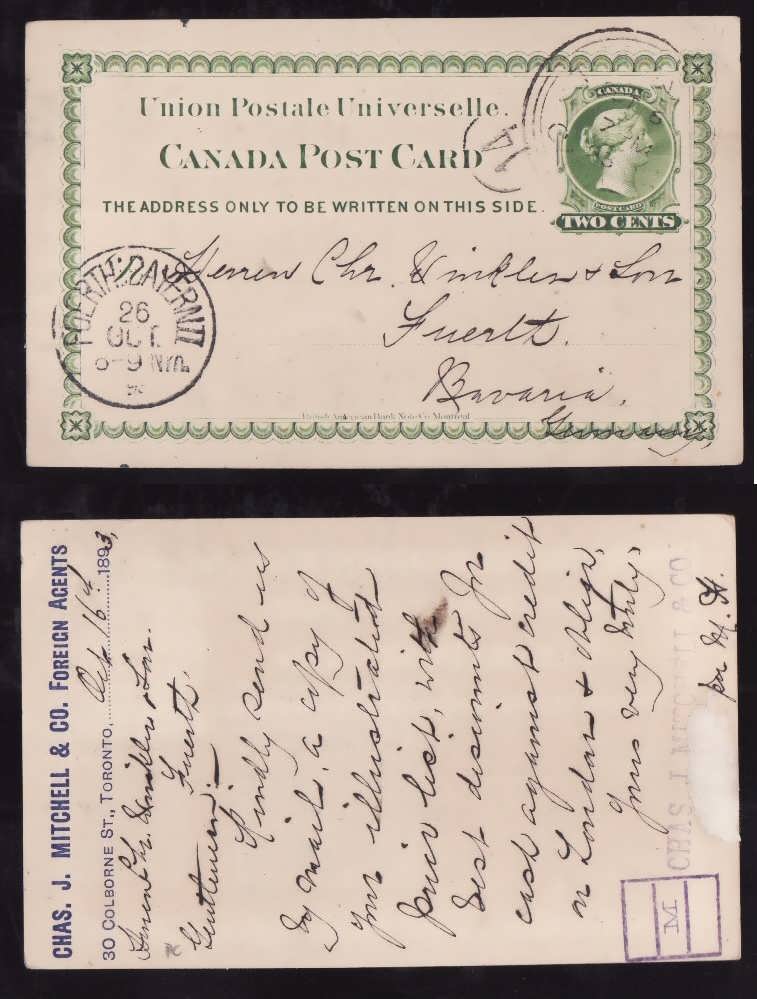 Union Postale Universelle.
CANADA POST CARD
THE ADDRESS ONLY TO BE WRITTEN ON THIS SIDE.
CANADA
POSTCARD
TWO CENTS
14
FUERTH:BAYERN II
26
OCT.
8-9 Nm.
Herren Chr. Winkler & Son
Fuerth.
Bavaria,
Germany,
British American Bank Note Co. Montreal
CHAS. J. MITCHELL & CO. FOREIGN AGENTS
30 COLBORNE ST., TORONTO, Oct 16th 1893,
Chr. Winkler & Son.
Fuerth.
Gentlemen:—
Kindly send us
by mail, a copy of
your illustrated
price list, with
best discounts for
cash against credit
in London & oblige,
Yours very truly,
CHAS. J. MITCHELL & CO
per M. H.
M